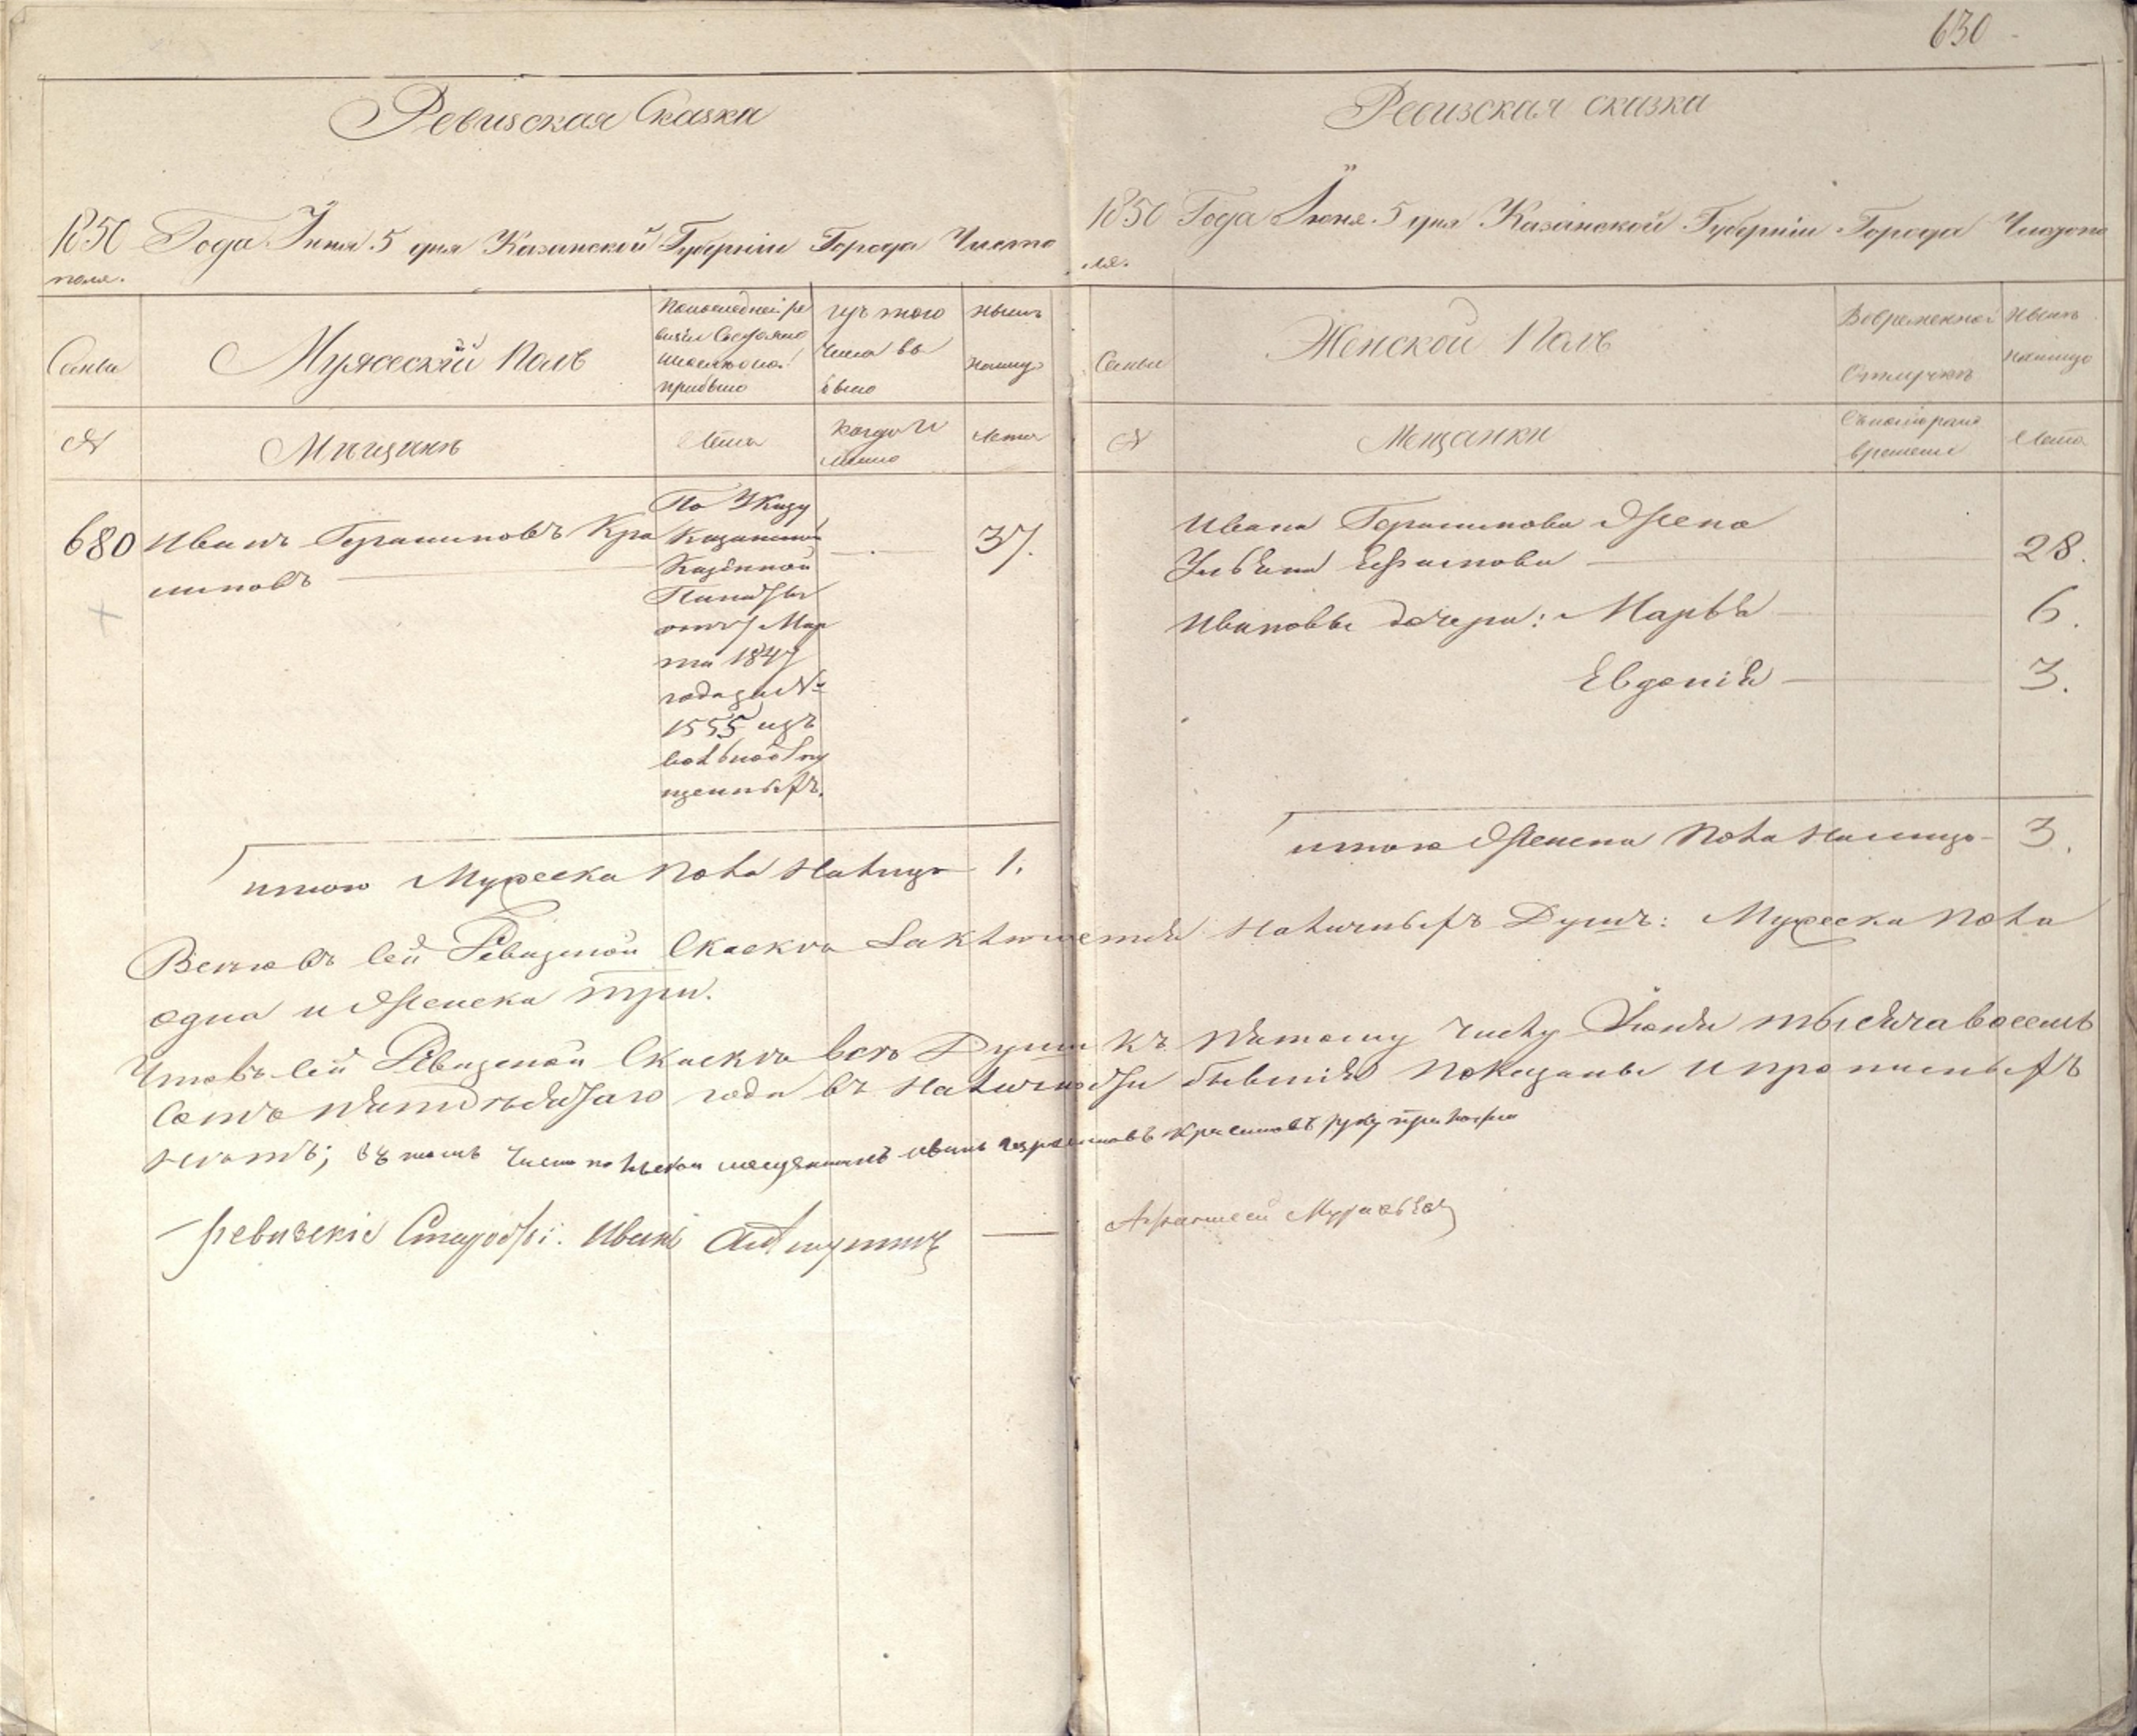 630
Ревизская Сказка
1850 Года Іюня 5 дня Казанской Губерніи Города Чисто
поля.
Семьи
Мужеский Полъ
По последней ре
прибыло
изъ того
числа вы
было
ныне
налицо
№
Мещане
Лета
когда и
Лета
680
Иванъ Герасимовъ Кра
симовъ
По Указу
Казанской
Казенной
Палаты
отъ 7 Мар
та 1847
года за №
1555 изъ
вольноотпу
щенныхъ.
37.
итого Мужеска пола налицо 1.
Ревизская сказка
1850 Года Іюня 5 дня Казанской Губерніи Города Чистопо
ля.
Семьи
Женской Полъ
Во временной
Отлучке
ныне
налицо
№
Мещанки
Съ котораго
времени
Лета
Ивана Герасимова Жена
Ульяна Ефимова 28.
Ивановы дочери: Марья 6.
Евдокия 3.
итого Женска пола налицо 3.
Всего въ сей Ревизской Сказке заключается наличныхъ Душъ: Мужеска пола
одна и Женска три.
Что въ сей Ревизской Сказке все Души къ пятому числу Июня тысяча восемь
сотъ пятидесятаго года въ наличности бывшия показаны и прописныхъ
нетъ; въ томъ Чистопольской мещанинъ иванъ герасимовъ Красимовъ руку приложил
ревизские Старосты: Иванъ